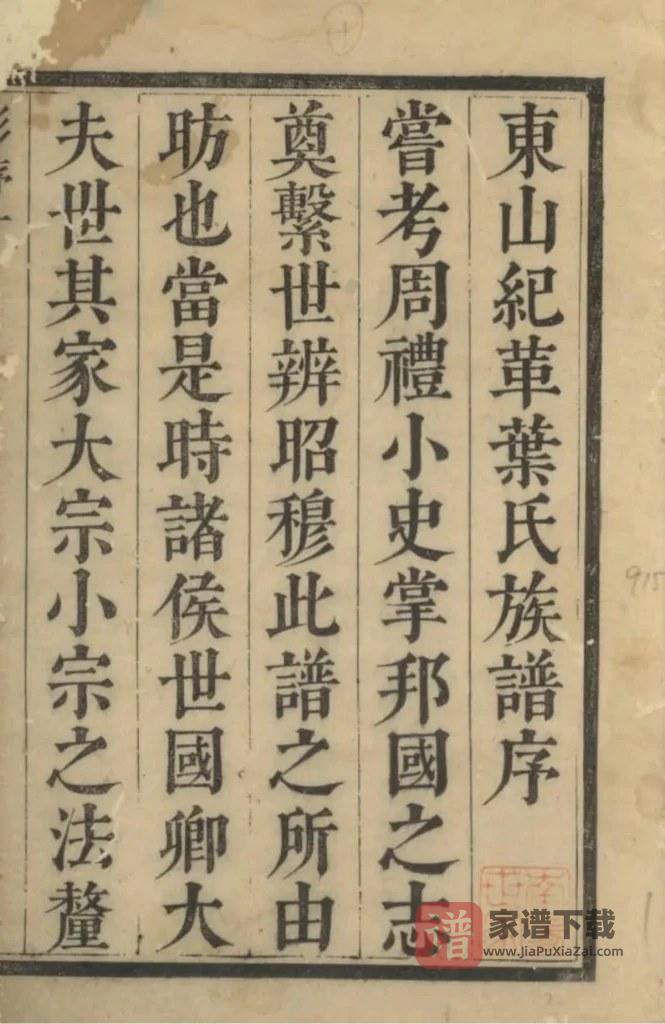 東山紀革葉氏族譜序
嘗考周禮小史掌邦國之志
奠繫世辨昭穆此譜之所由
昉也當是時諸侯世國卿大
夫世其家大宗小宗之法釐
915
谱
家谱下载
www.JiaPuXiaZai.com